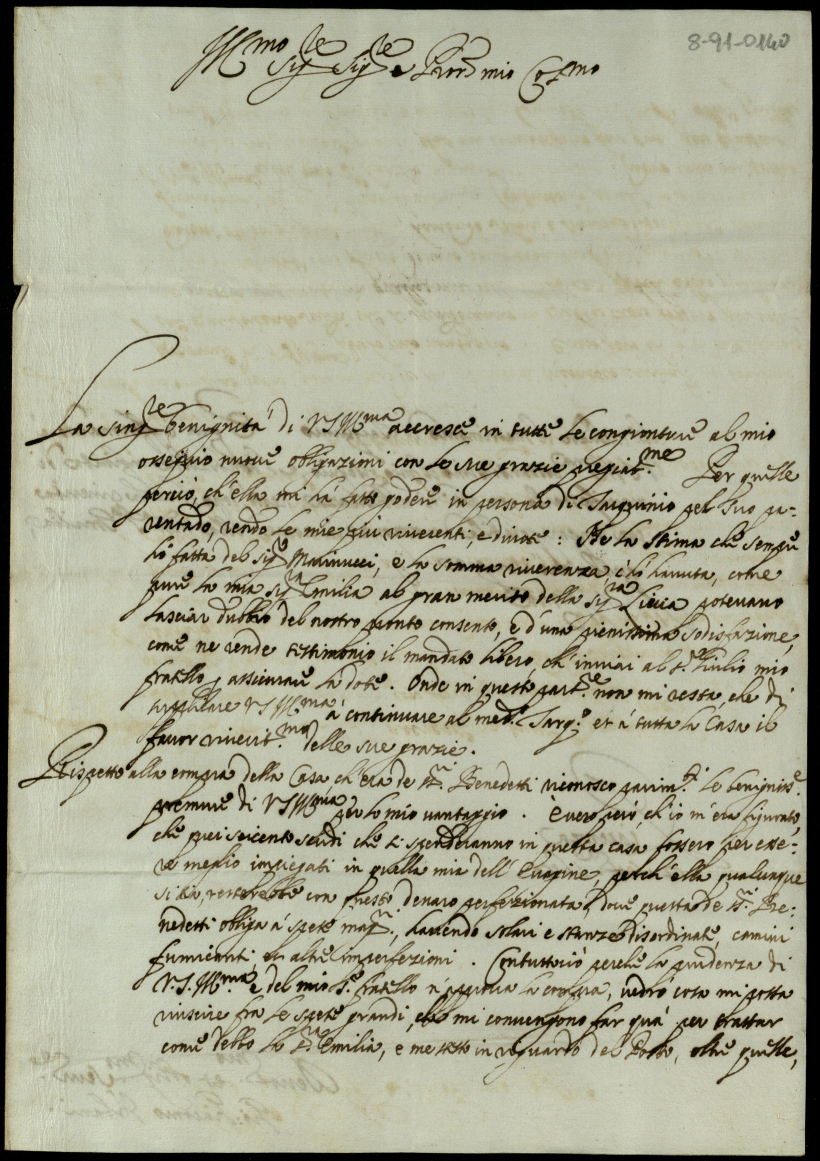 8-91-0140
Ill.mo Sig.re Sig.re e Pron mio Col.mo
La sing.re benignità di V S Ill.ma accresce in tutte le congionture al mio
ossequio nuove obligazioni con le sue grazie Per quelle
perciò, ch'ella mi hà fatto godere in persona di Tarquinio pel suo pa=
rentado, rendo le mie più riverenti, e divote: Nè la stima che sempre
hò fatta del Sig.r Marinucci, e la somma riverenza, c'hò havuta, come
pure la mia Sig.ra Emilia al gran merito della Sig.ra potevano
lasciar dubbio del nostro pronto consenso, e d'una pienissima sodisfazione,
come ne rende testimonio il mandato libero, ch'inviai al S.r Giulio mio
fratello, assicurare la dote. Onde in questa part.e non mi resta, che di
supplicare V S Ill.ma à continuare al med.o Tarq.o et à tutta la Casa il
favor riverit.mo delle sue grazie.
Rispetto alla compra della Casa ch'era de SS.ri Benedetti riconosco parim.ti le benigniss.e
premure di V S Ill.ma per lo mio vantaggio. È vero però, ch'io m'era figurato,
che quei seicento scudi che si spenderanno in questa casa fossero per esse=
re meglio impiegati in quella mia dell' perch'ella, qualunque
si sia, resterebbe con questo denaro perfezionata, dove questa de SS.ri Be=
nedetti obliga à spese mag.ri, havendo solari e stanze disordinate, camini
fumicanti et altre imperfezioni. Contuttociò perche la prudenza di
V.S. Ill.ma e del mio S.r fratello n'approva la compra, vedrò cosa mi possa
riuscire fra le spese grandi, che mi convengono far quà per trattar
come debbo la S.ra Emilia, e me stesso in riguardo del Posto, oltre quelle,